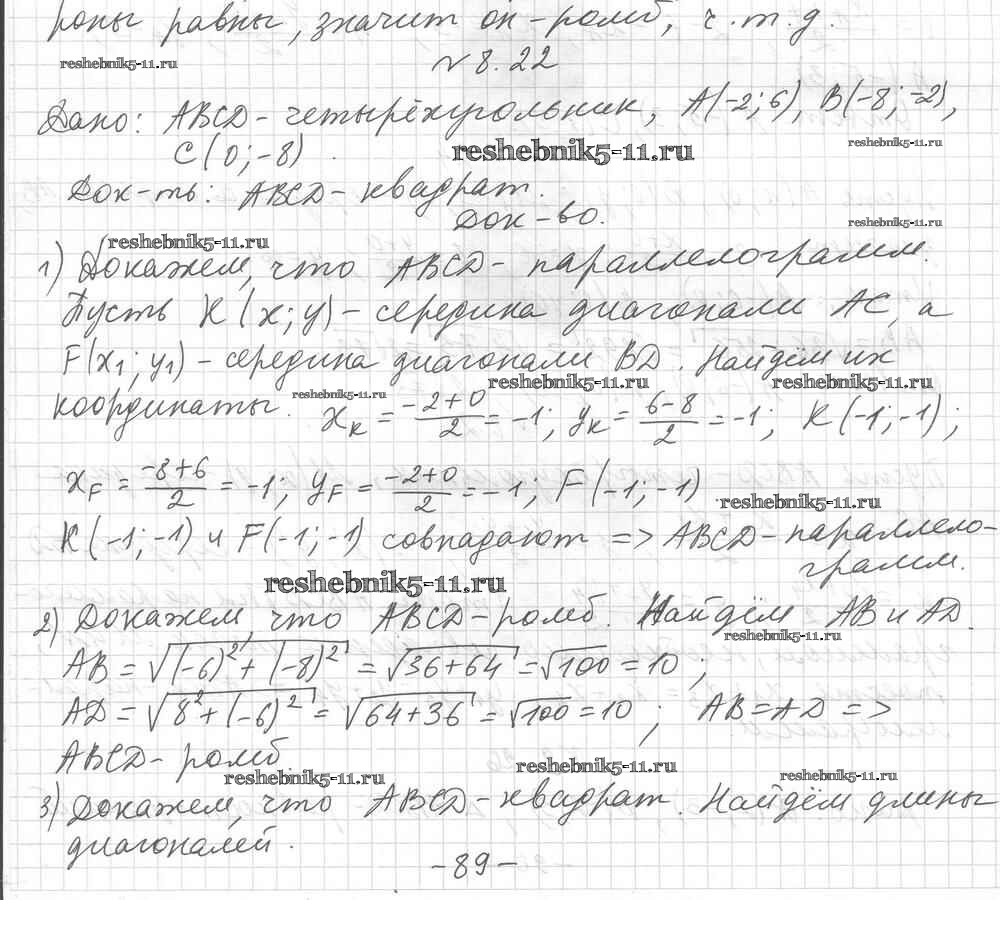 роны равны, значит он - ромб, ч.т.д.
reshebnik5-11.ru
№ 8.22
Дано: ABCD - четырёхугольник, A(-2; 6), B(-8; -2),
reshebnik5-11.ru
C(0; -8)
reshebnik5-11.ru
Док-ть: ABCD - квадрат.
Док-во.
reshebnik5-11.ru
reshebnik5-11.ru
1) Докажем, что ABCD - параллелограмм.
Пусть K(x; y) - середина диагонали AC, а
F(x₁; y₁) - середина диагонали BD. Найдём их
reshebnik5-11.ru
reshebnik5-11.ru
reshebnik5-11.ru
координаты. x_K = (-2+0)/2 = -1; y_K = (6-8)/2 = -1; K(-1; -1);
x_F = (-8+6)/2 = -1; y_F = (-2+0)/2 = -1; F(-1; -1)
reshebnik5-11.ru
K(-1; -1) и F(-1; -1) совпадают => ABCD - параллело-
грамм.
reshebnik5-11.ru
2) Докажем, что ABCD - ромб. Найдём AB и AD.
reshebnik5-11.ru
AB = √((-6)²+(-8)²) = √(36+64) = √100 = 10;
AD = √(8²+(-6)²) = √(64+36) = √100 = 10; AB=AD =>
ABCD - ромб.
reshebnik5-11.ru
reshebnik5-11.ru
reshebnik5-11.ru
3) Докажем, что ABCD - квадрат. Найдём длины
диагоналей.
- 89 -